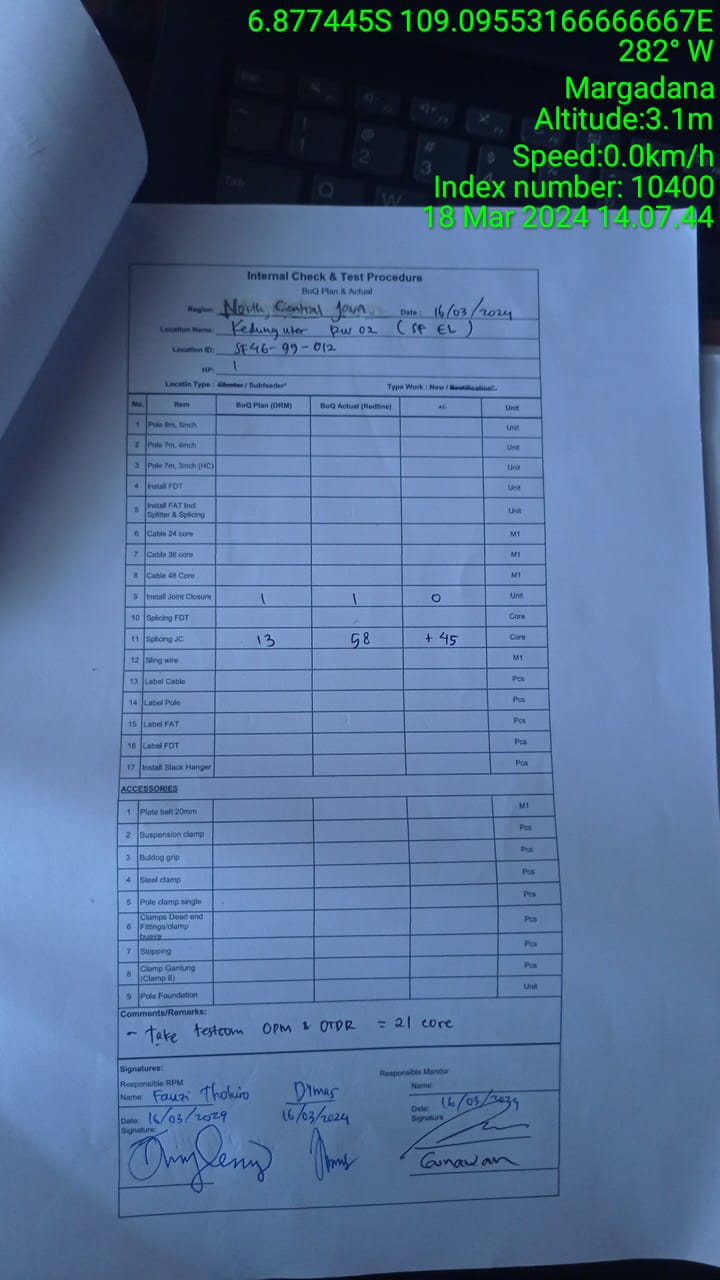 6.877445S 109.09553166666667E
282° W
Margadana
Altitude:3.1m
Speed:0.0km/h
Index number: 10400
18 Mar 2024 14.07.44
Internal Check & Test Procedure
BoQ Plan & Actual
Region: North, Central Java Date: 16/03/2024
Location Name: Kedung uter RW 02 (SF EL)
Location ID: SF46-99-012
HP: 1
Locatin Type : Cluster / Subfeeder* Type Work : New / Rectification*
No. Item BoQ Plan (DRM) BoQ Actual (Redline) +/- Unit
1 Pole 9m, 5inch Unit
2 Pole 7m, 4inch Unit
3 Pole 7m, 3inch (HC) Unit
4 Install FDT Unit
5 Install FAT Incl Splitter & Splicing Unit
6 Cable 24 core M1
7 Cable 36 core M1
8 Cable 48 Core M1
9 Install Joint Closure 1 1 0 Unit
10 Splicing FDT Core
11 Splicing JC 13 58 + 45 Core
12 Sling wire M1
13 Label Cable Pcs
14 Label Pole Pcs
15 Label FAT Pcs
16 Label FDT Pcs
17 Install Slack Hanger Pcs
ACCESSORIES
1 Plate belt 20mm M1
2 Suspension clamp Pcs
3 Buldog grip Pcs
4 Steel clamp Pcs
5 Pole clamp single Pcs
6 Clamps Dead end Fittings/clamp buaya Pcs
7 Stopping Pcs
8 Clamp Gantung (Clamp B) Pcs
9 Pole Foundation Unit
Comments/Remarks:
- Take testcom OPM & OTDR = 21 core
Signatures:
Responsible RPM Responsible Mandor
Name: Fauzi Thohiro Dimas Name:
Date: 16/03/2024 16/03/2024 Date: 16/03/2024
Signature: Signature
Gunawan